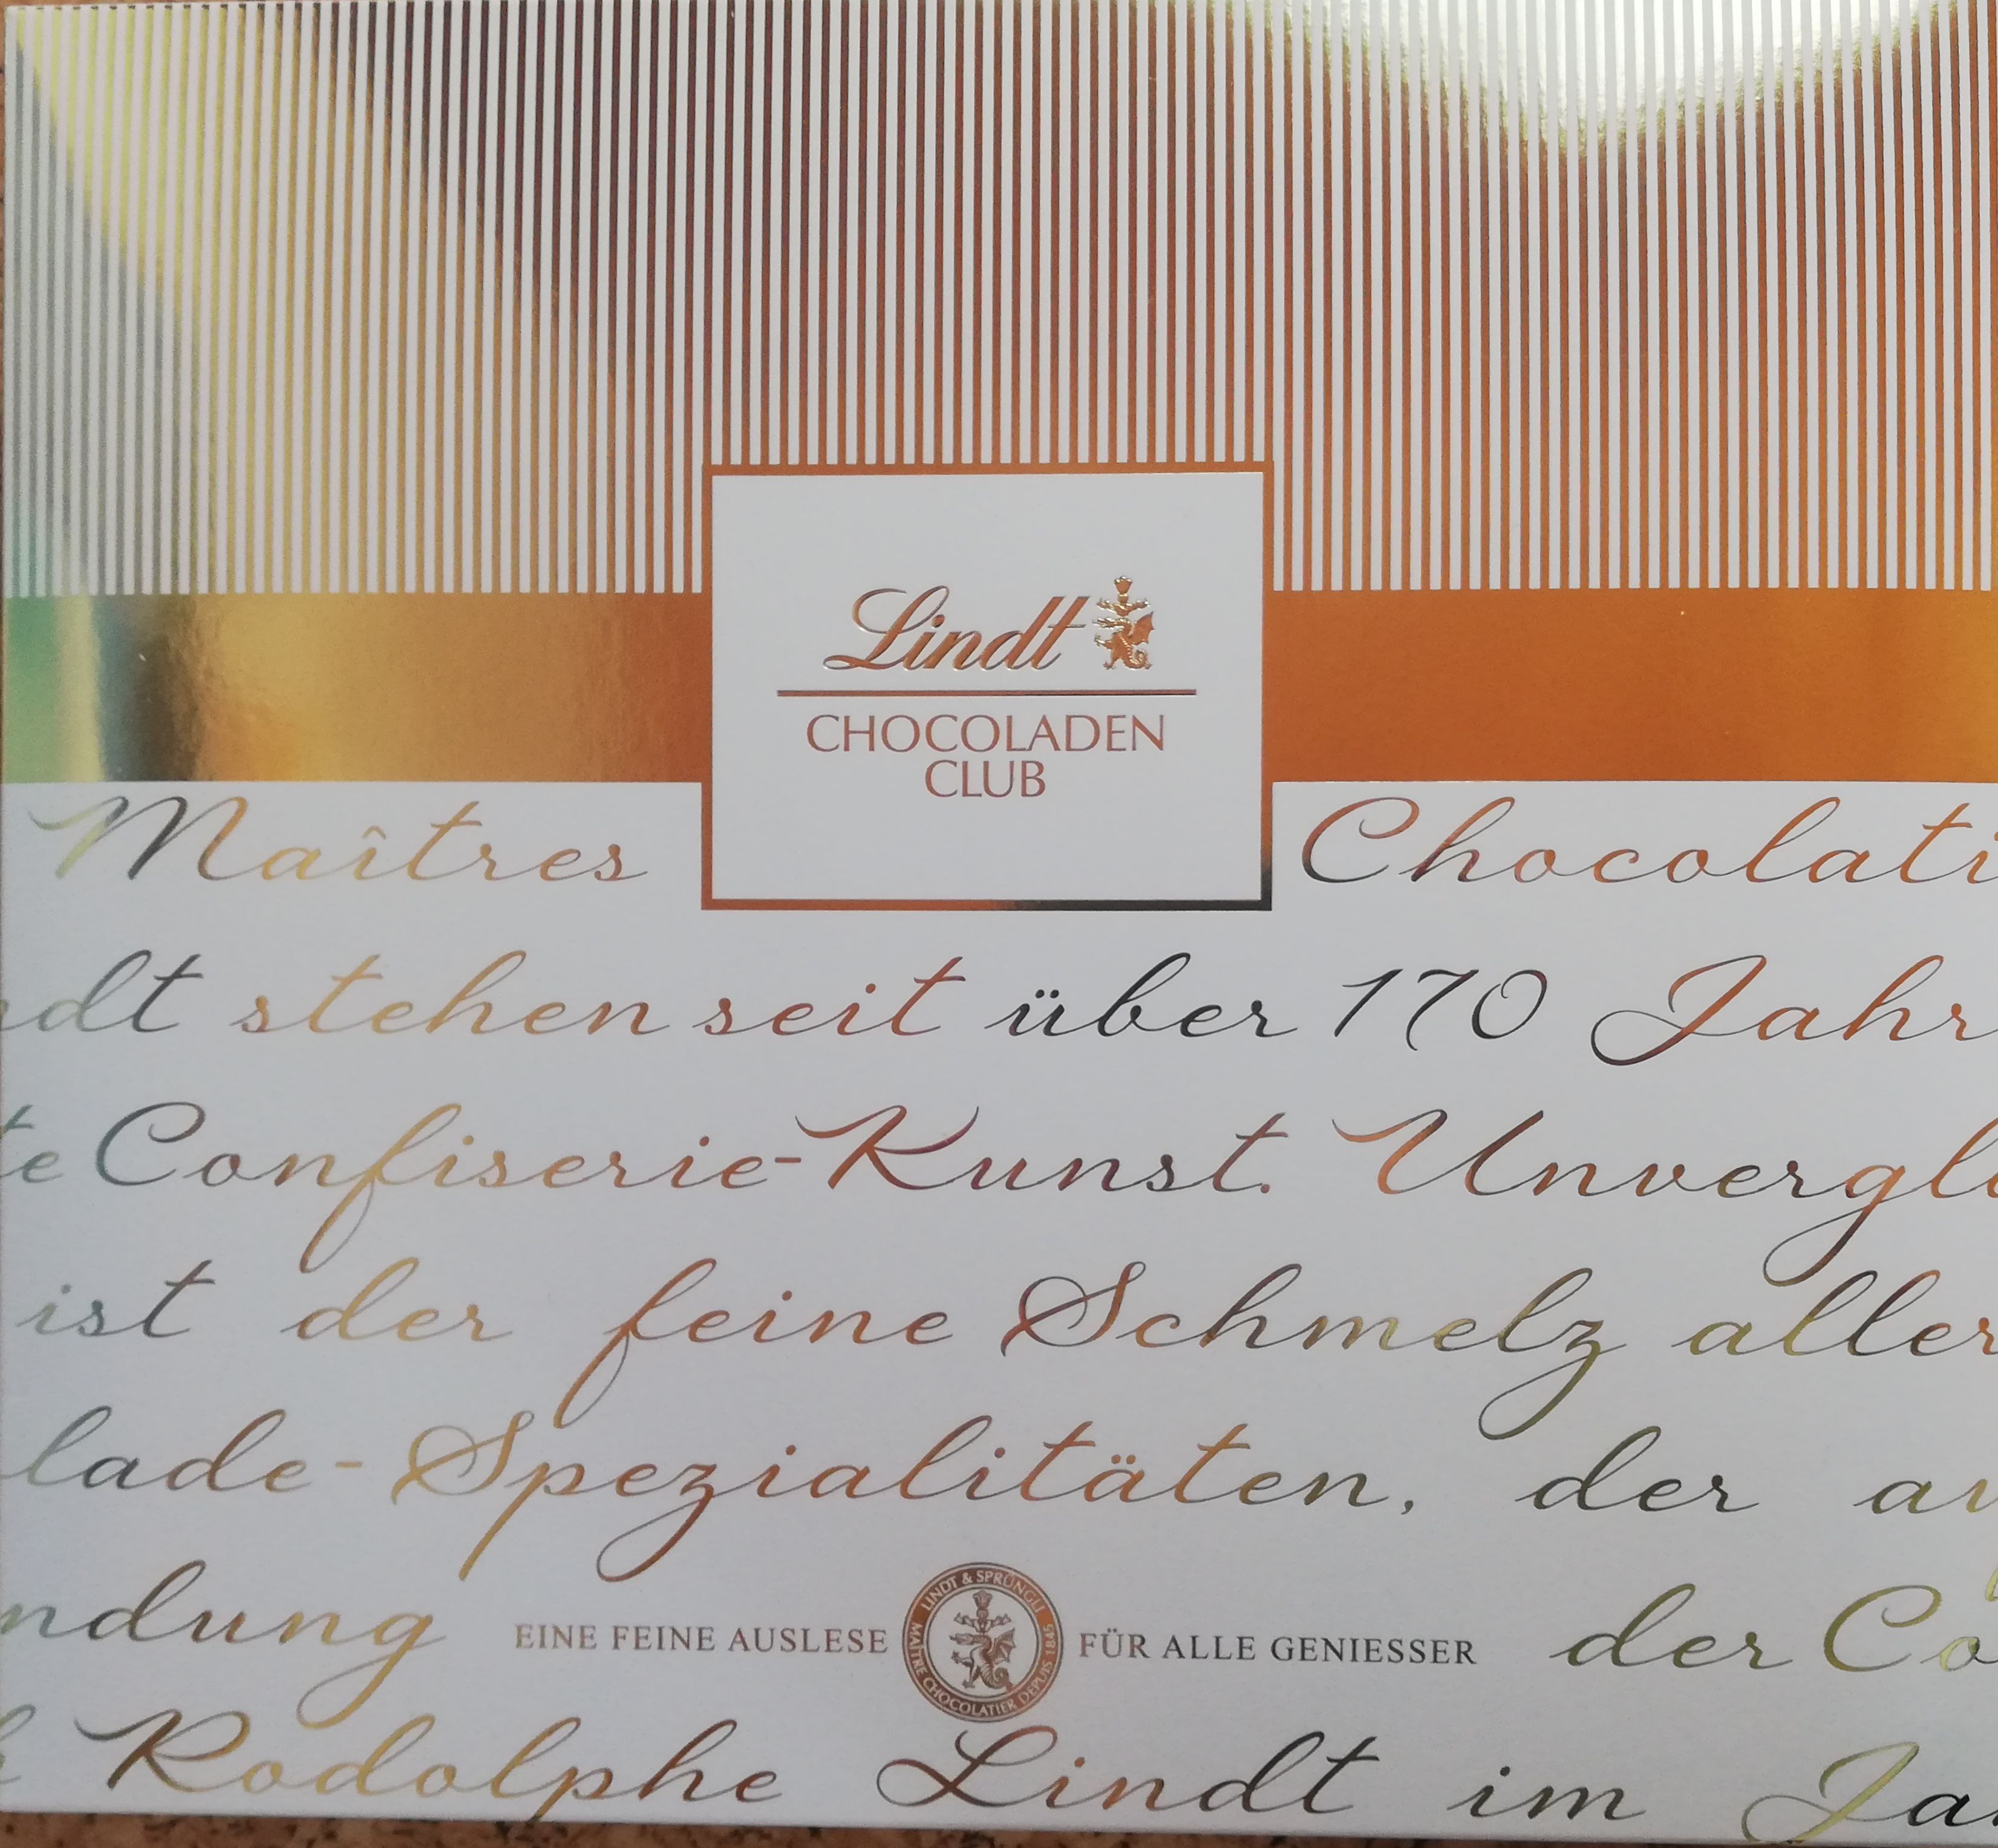 Lindt
CHOCOLADEN
CLUB
Maîtres Chocolati
dt stehen seit über 170 Jahr
te Confiserie-Kunst. Unvergl
ist der feine Schmelz aller
lade-Spezialitäten, der au
ndung der Co
EINE FEINE AUSLESE FÜR ALLE GENIESSER
LINDT & SPRÜNGLI
MAÎTRE CHOCOLATIER DEPUIS 1845
Rodolphe Lindt im Ja